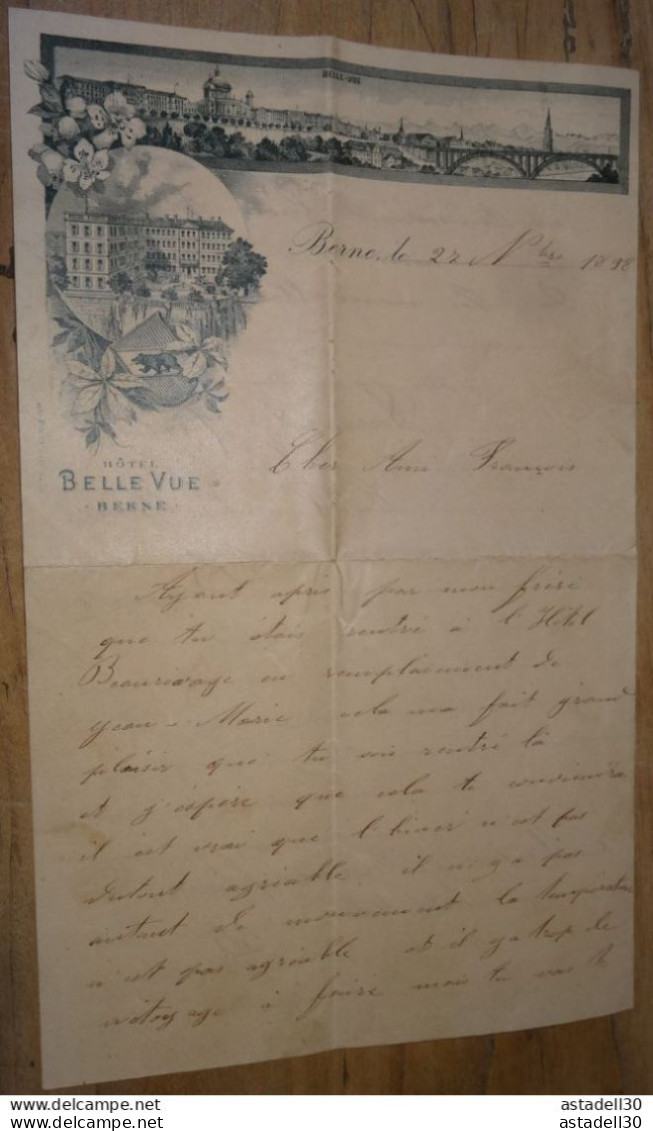 BELLE-VUE
Berne, le 22 Nbre 1898
HÔTEL
BELLE VUE
BERNE
Cher Ami François
Ayant apris par mon frère
que tu étais rentré à l'Hotel
Beaurivage en remplaiment de
Jean-Marie cela ma fait grand
plaisir que tu sois rentré là
et j'espère que cela te conviendra
il est vrai que l'hiver n'est pas
dutout agréable il n'y a pas
autant de mouvement la température
n'est pas agréable et il y a trop de
nétoyage à faire mais tu vas
astadell30 astadell30
astadell30 astadell30